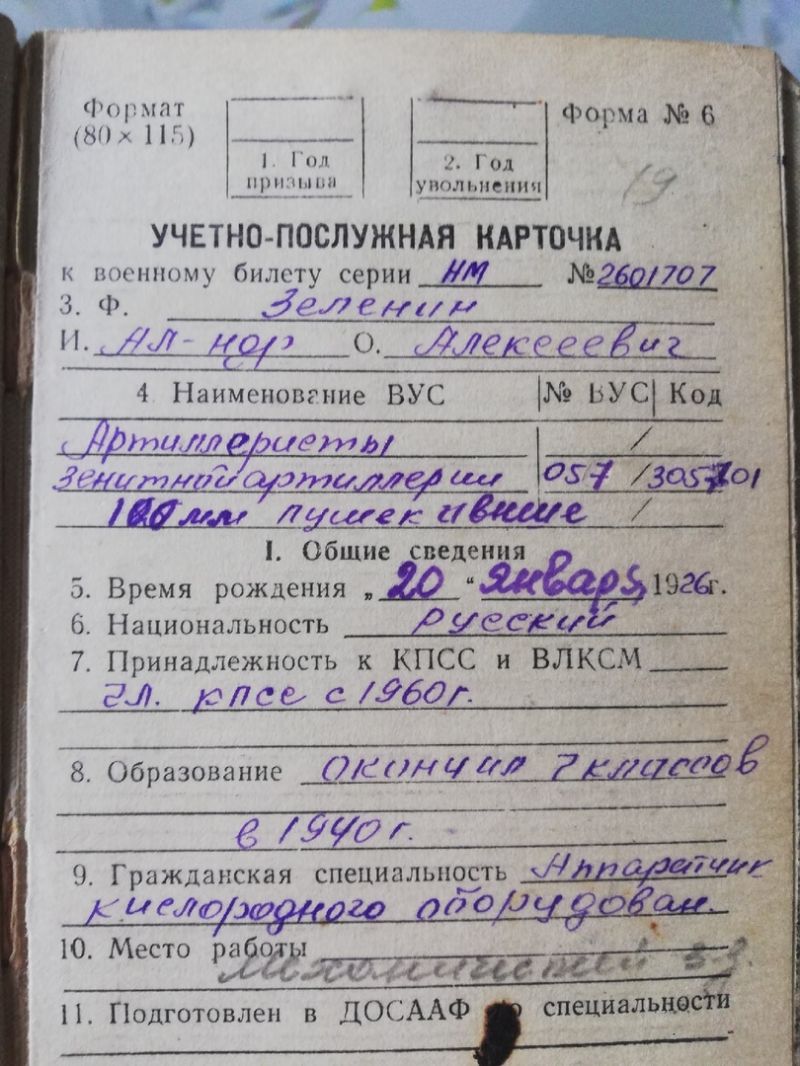 Формат
(80 × 115)
1. Год
призыва
2. Год
увольнения
Форма № 6
19
УЧЕТНО-ПОСЛУЖНАЯ КАРТОЧКА
к военному билету серии НМ № 2601707
3. Ф. Зеленин
И. Ал-ндр О. Алексеевич
4 Наименование ВУС № ВУС Код
Артиллеристы /
зенитной артиллерии 057 /
пушек /
I. Общие сведения
5. Время рождения „20“ января 1926г.
6. Национальность русский
7. Принадлежность к КПСС и ВЛКСМ
чл. кпсс с 1960г.
8. Образование окончил 7 классов
в 1940г.
9. Гражданская специальность Аппаратчик
кислородного оборудован.
10. Место работы
Механический з-д
11. Подготовлен в ДОСААФ специальности